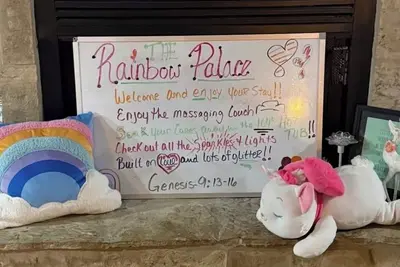 THE
Rainbow Palace
Welcome and enjoy your Stay!!
Enjoy the massaging Couch
Soak your Cares away in the HOT TUB!!
Check out all the Sparkles & Lights
Built on love and lots of glitter!!
Genesis-9:13-16